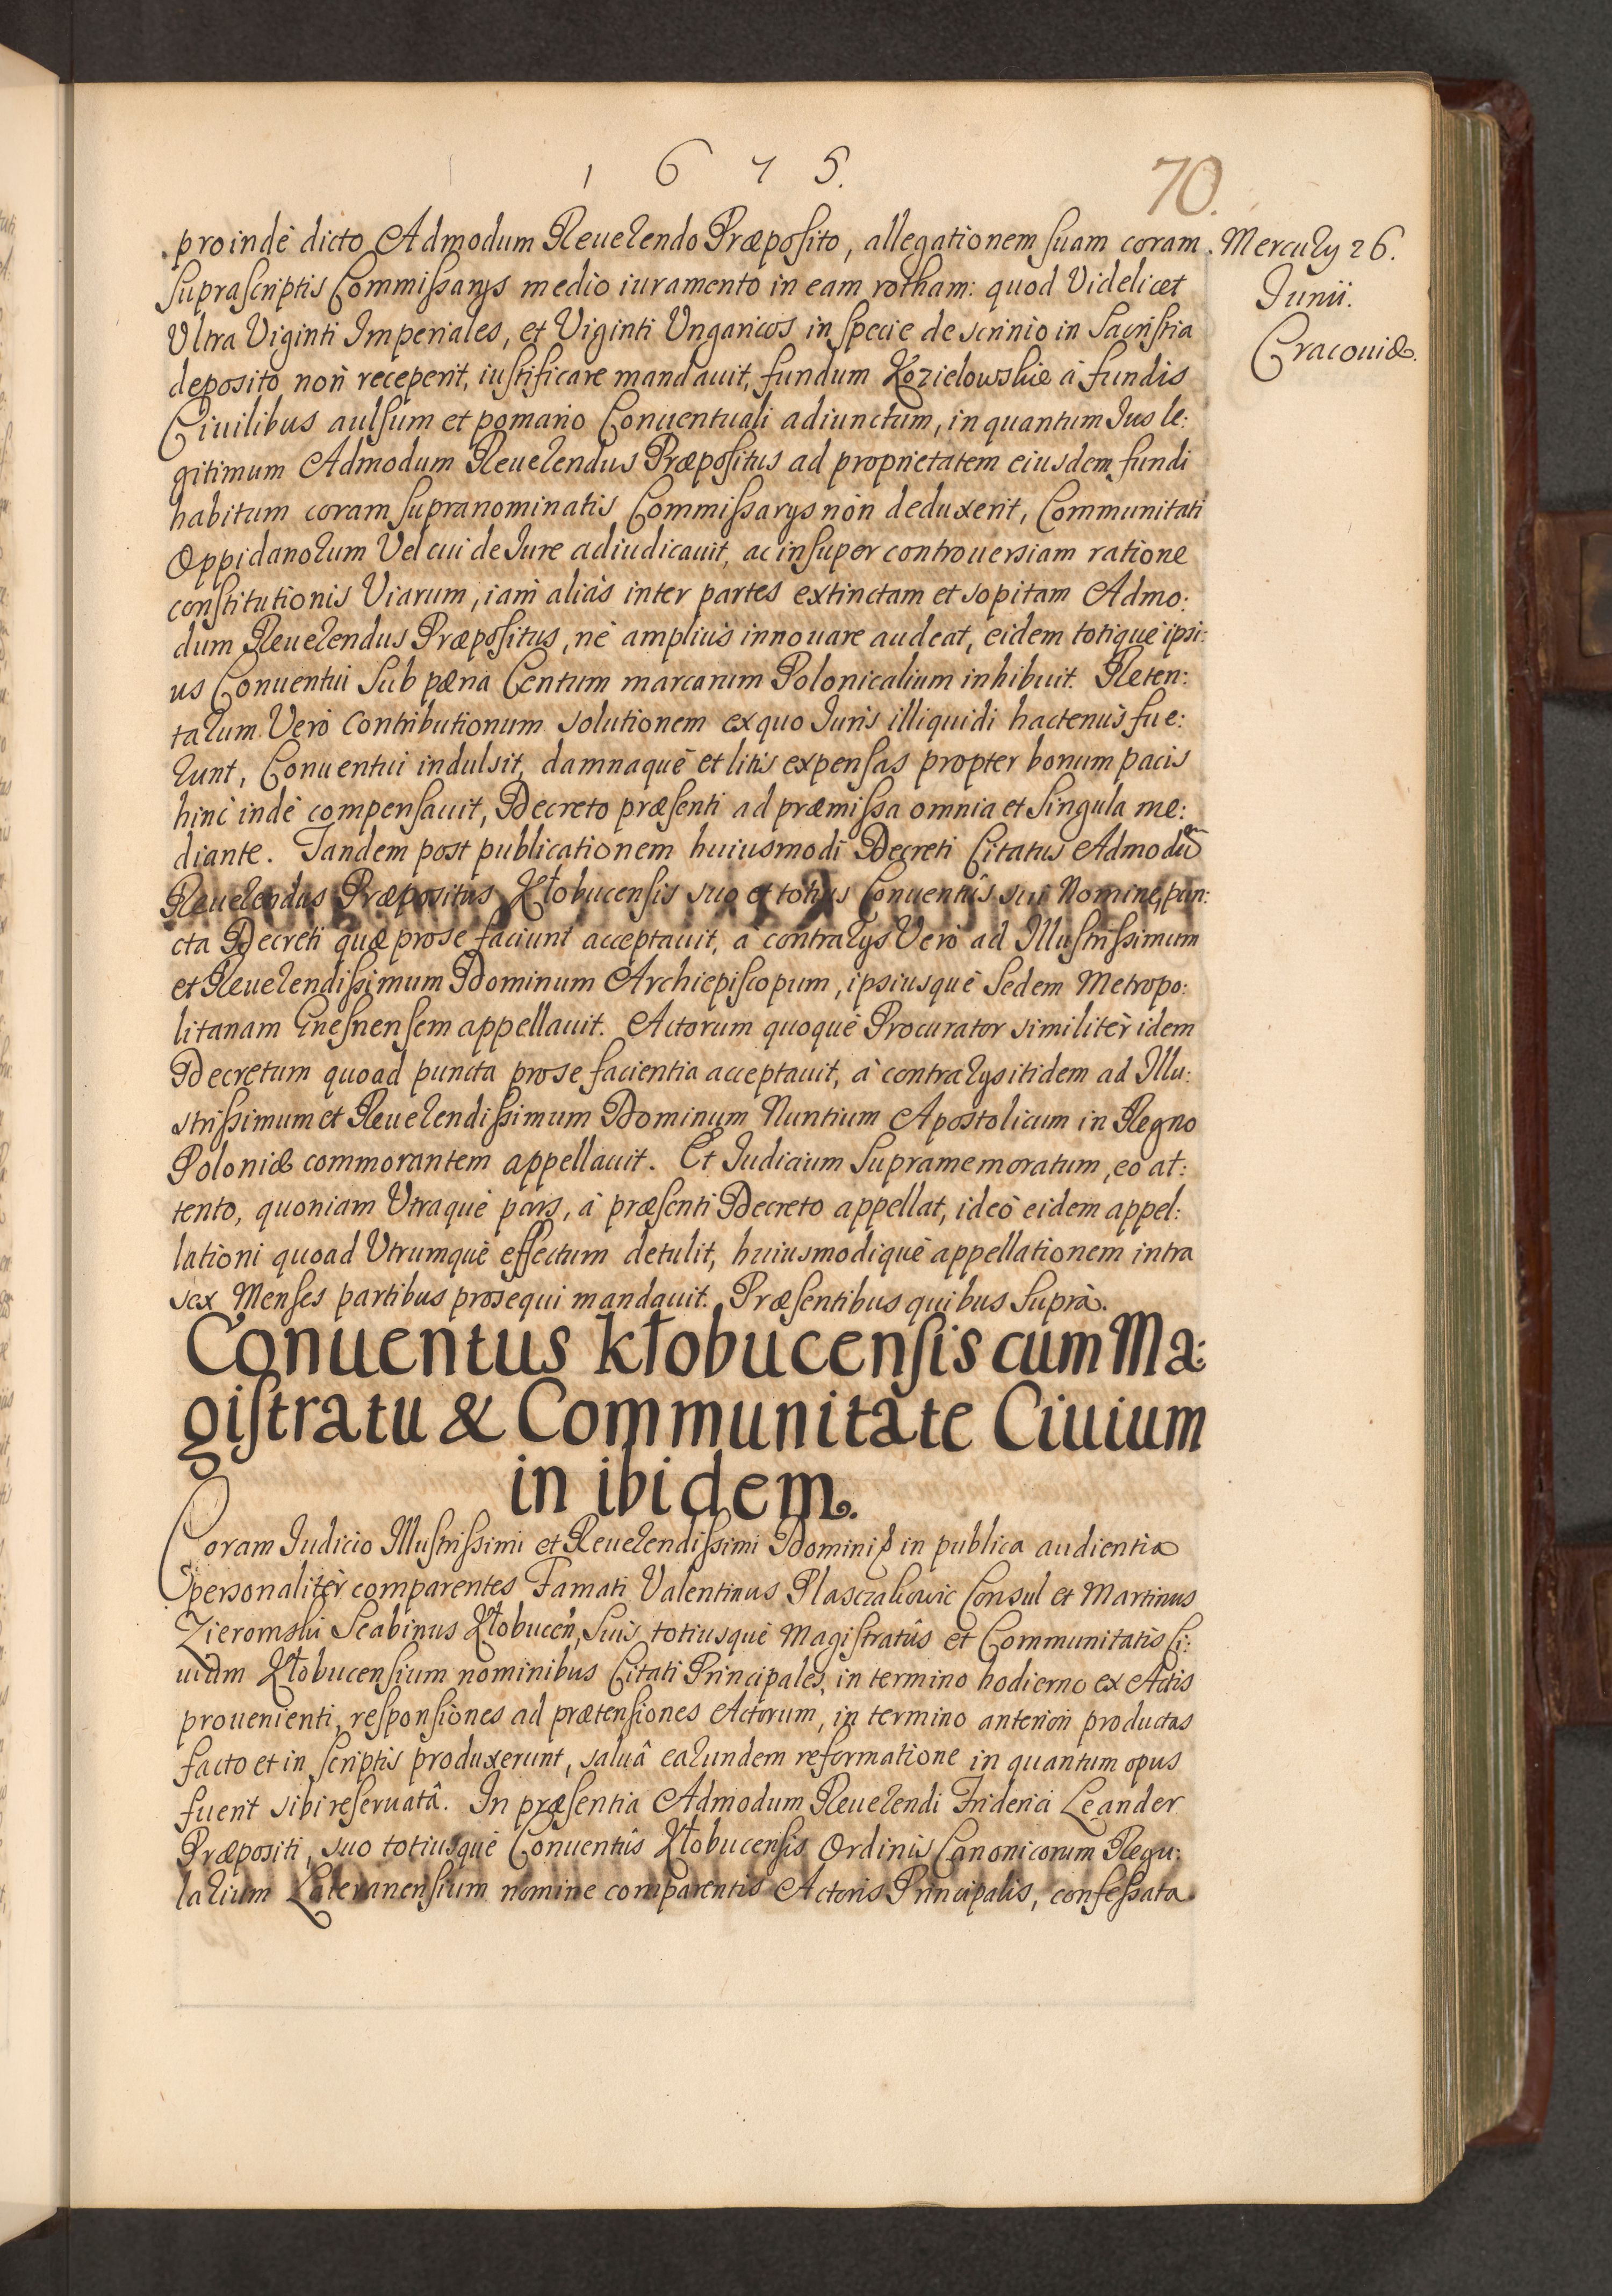 1675.
70.
proindè dicto Admodum Reuerendo Præposito, allegationem suam coram
Mercurÿ 26.
Junii.
Cracouiæ.
suprascriptis Commissarÿs medio iuramento in eam rotham: quod Videlicet
Vltra Viginti Imperiales, et Viginti Vngaricos in specie de scrinio in Sacristia
deposito non receperit, iustificare mandauit, fundum Kozielowskie à fundis
Ciuilibus aulsum et pomario Conuentuali adiunctum, in quantum Jus le:
gitimum Admodum Reuerendus Præpositus ad proprietatem eiusdem fundi
habitum coram supranominatis Commissarÿs non deduxerit, Communitati
Oppidanorum Vel cui de Jure adiudicauit, ac insuper controuersiam ratione
constitutionis Viarum, iam aliàs inter partes extinctam et sopitam Admo:
dum Reuerendus Præpositus, nè ampliùs innouare audeat, eidem totiquè ipsi:
us Conuentui sub pæna Centum marcarum Polonicalium inhibuit. Reten:
tarum Verò Contributionum solutionem ex quo Juris illiquidi hactenùs fue:
runt, Conuentui indulsit, damnaquè et litis expensas propter bonum pacis
hinc indè compensauit, Decreto præsenti ad præmissa omnia et singula me:
diante. Tandem post publicationem huiusmodi Decreti Citatus Admodũ
Reuerendus Præpositus Kłobucensis suo et totius Conuentûs sui Nomine, pun:
cta Decreti quæ pro se faciunt acceptauit, à contrarÿs Verò ad Illustrissimum
et Reuerendissimum Dominum Archiepiscopum, ipsiusquè Sedem Metropo:
litanam Gnesnensem appellauit. Actorum quoquè Procurator similitèr idem
Decretum quoad puncta pro se facientia acceptauit, à contrarÿs itidem ad Illu:
strissimum et Reuerendissimum Dominum Nuntium Apostolicum in Regno
Poloniæ commorantem appellauit. Et Judicium Supramemoratum, eo at:
tento, quoniam Vtraquè pars, à præsenti Decreto appellat, ideò eidem appel:
lationi quoad Vtrumquè effectum detulit, huiusmodiquè appellationem intra
sex Menses partibus prosequi mandauit. Præsentibus quibus Suprà.
Conuentus kłobucensis cum Ma:
gistratu & Communitate Ciuium
in ibidem.
Coram Judicio Illustrissimi et Reuerendissimi Domini in publica audientia
personalitèr comparentes Famati Valentinus Plasczakowic Consul et Martinus
Zieromski Scabinus Kłobucen, suis totiusquè Magistratûs et Communitatis Ci:
uium Kłobucensium nominibus Citati Principales, in termino hodierno ex Actis
prouenienti, responsiones ad prætensiones Actorum, in termino anteriori productas
facto et in scriptis produxerunt, saluâ earundem reformatione in quantum opus
fuerit sibi reseruatâ. In præsentia Admodum Reuerendi Friderici Leander
Præpositi, suo totiusquè Conuentûs Kłobucensis Ordinis Canonicorum Regu:
larium Lateranensium nomine comparentis Actoris Principalis, confessata